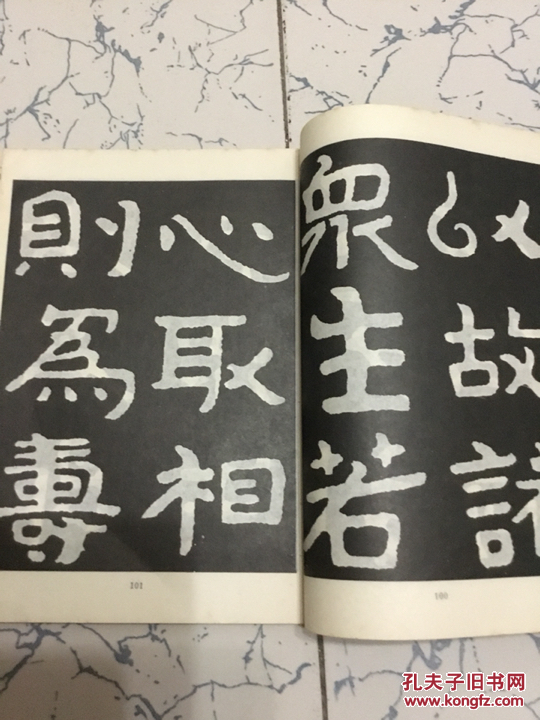 以故諸
眾生若
100
心取相
則為壽
101
孔夫子旧书网
www.kongfz.com